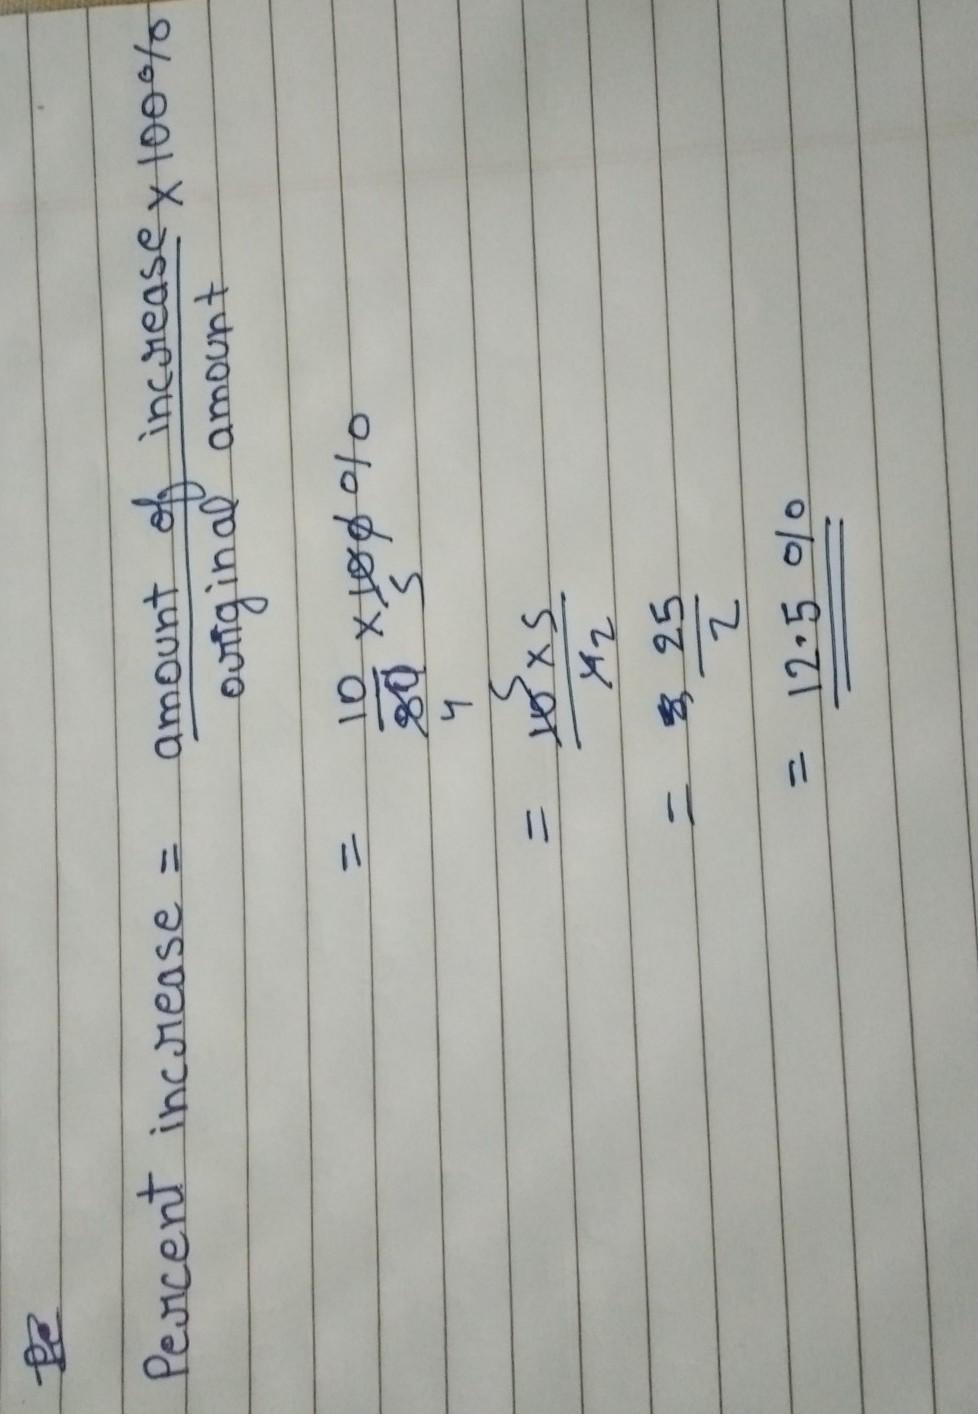 Percent increase = amount of increase × 100%
original amount
= 10 × 100 %
80 5
4
= 10 5 × 5
4 2
= 25
2
= 12.5 %